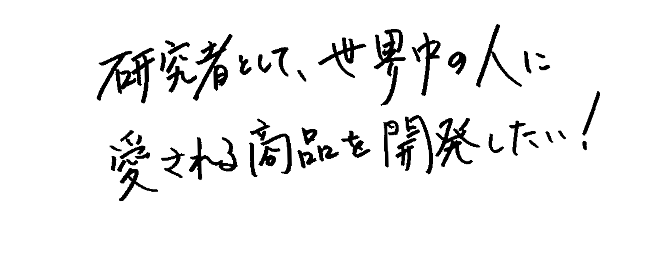 研究者として、世界中の人に
愛される商品を開発したい!